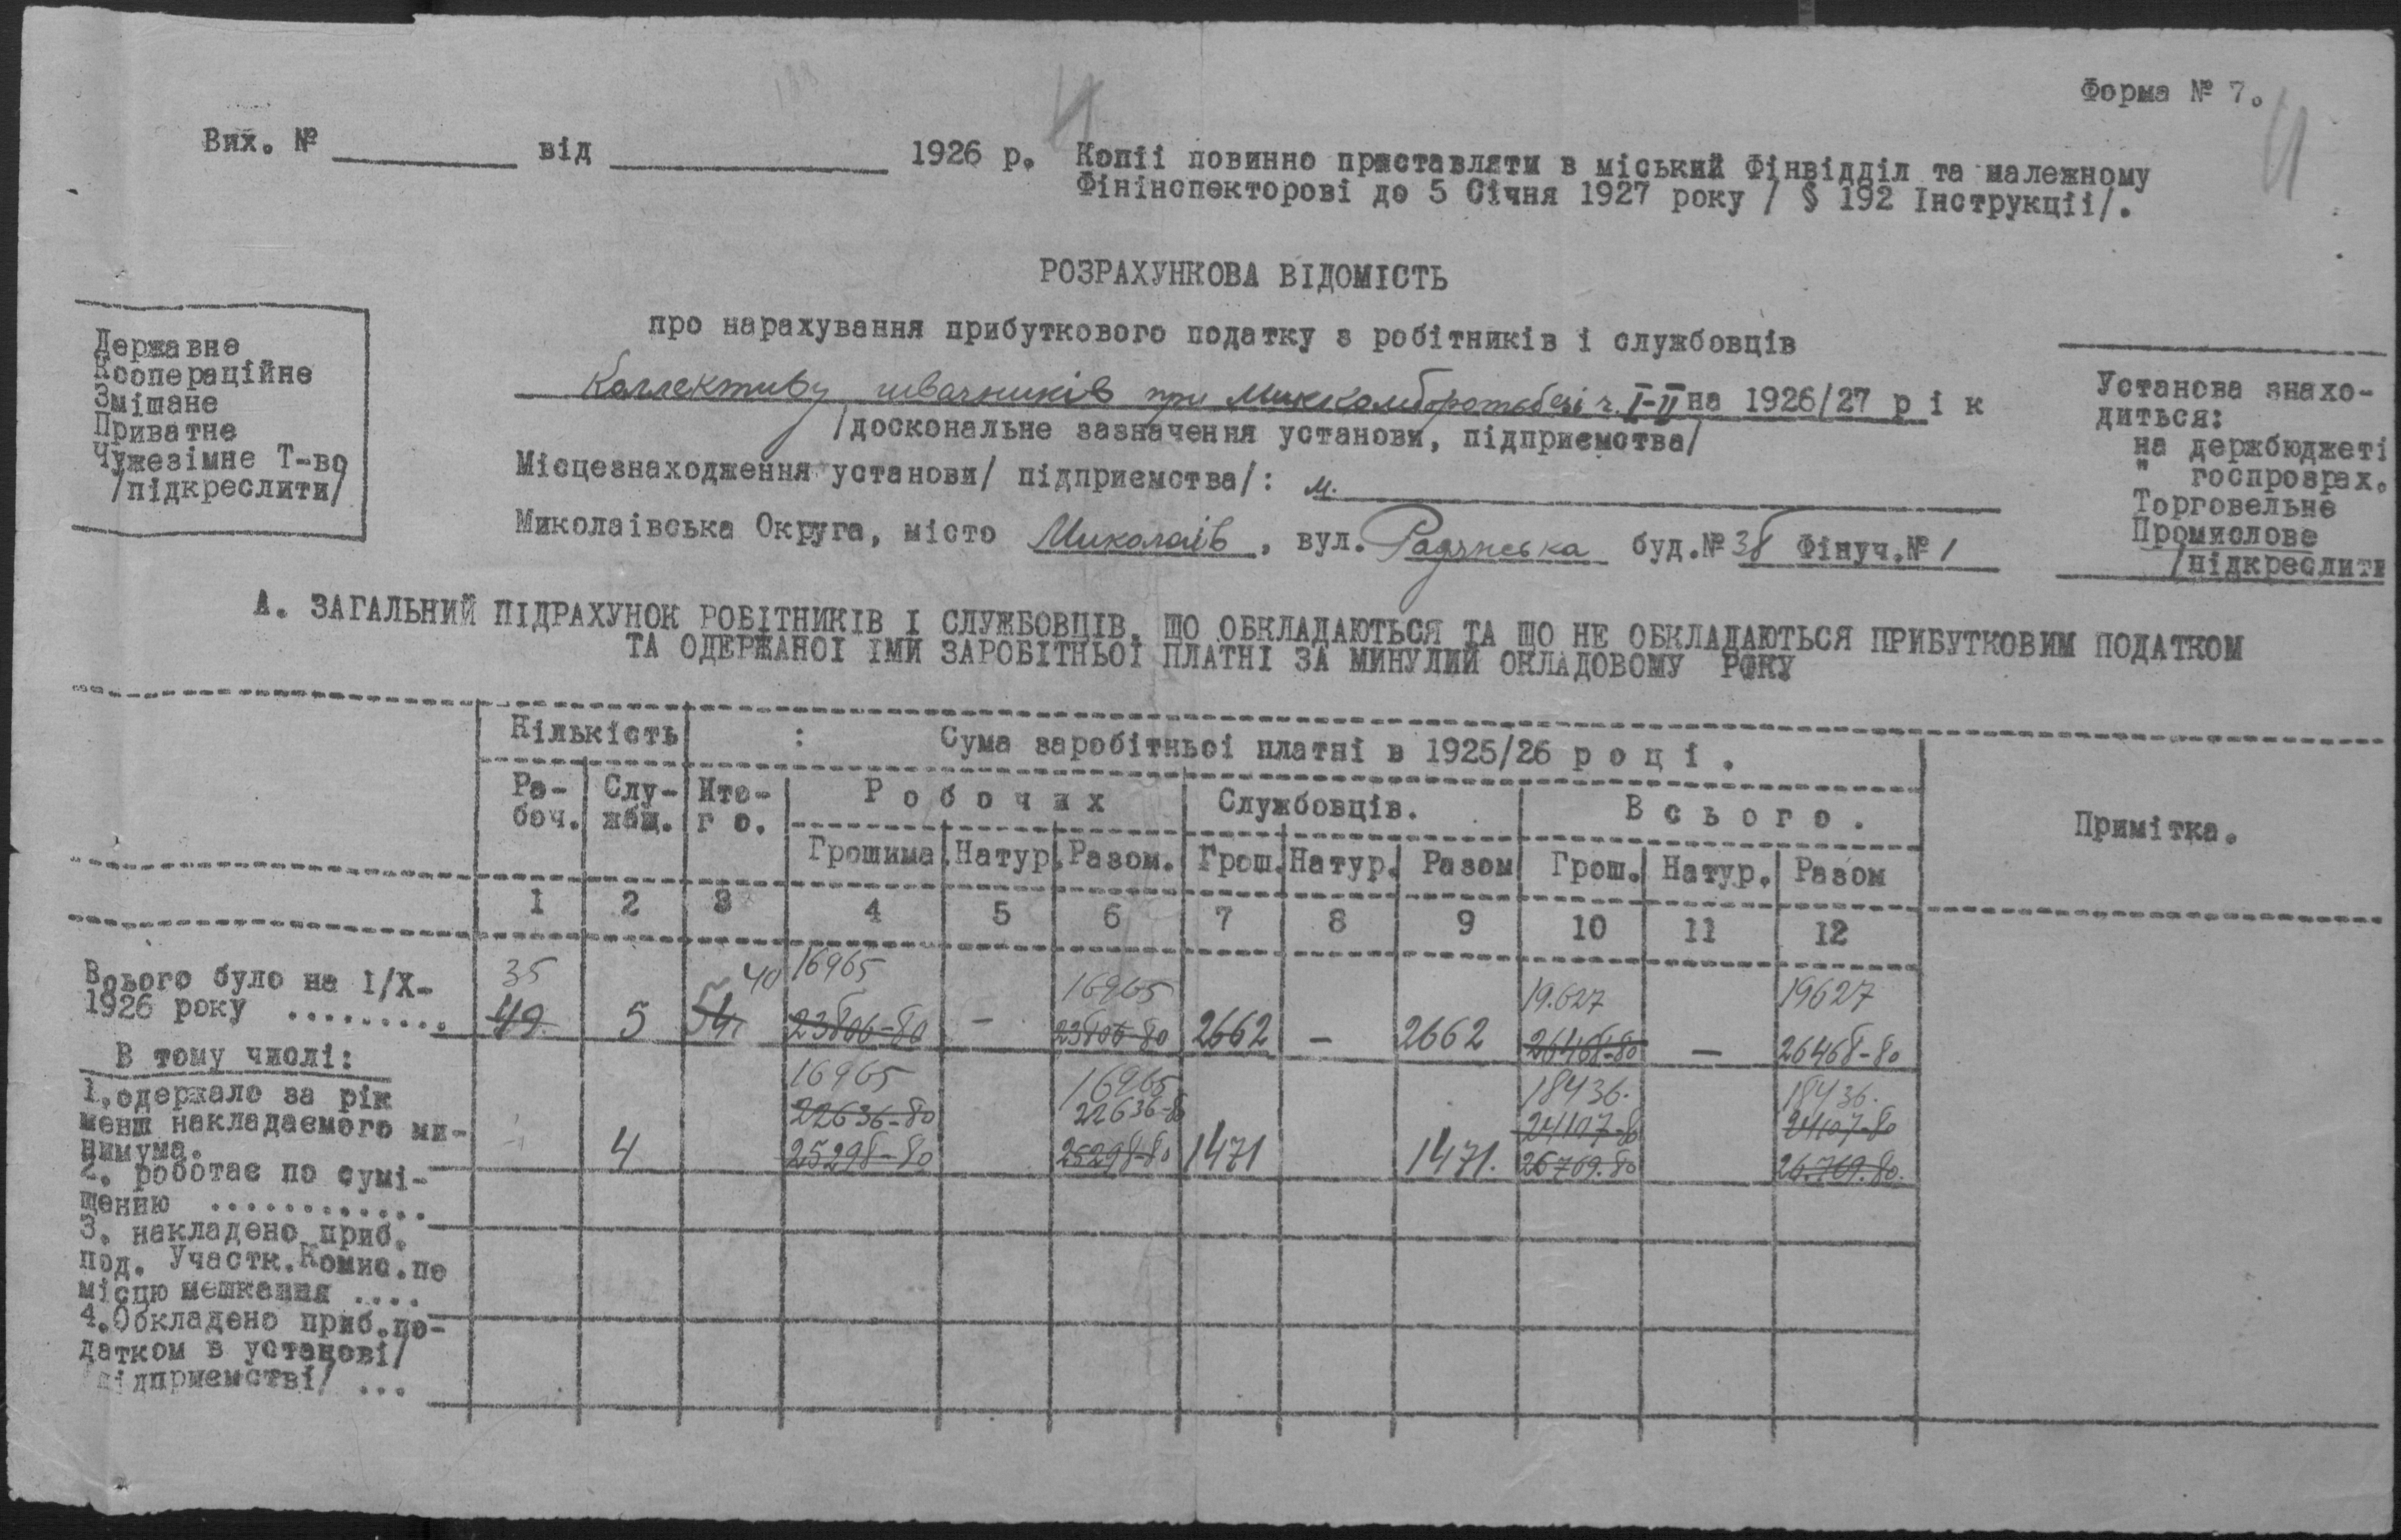 Форма № 7.
Вих. № від 1926 р. Копіі повинно приставляти в міський Фінвідділ та належному
Фінінспекторові до 5 Січня 1927 року / § 192 Інструкціі/.
РОЗРАХУНКОВА ВІДОМІСТЬ
про нарахування прибуткового податку з робітників і службовців
Державне
Коопераційне
Змішане
Приватне
Чужезімне Т-во
/підкреслити/
Коллективу швачників при I-II на 1926/27 р і к
/доскональне зазначення установи, підприємства/
Місцезнаходження установи/ підприємства/: м.
Миколаівська Округа, місто Миколаів, вул. Радянська буд.№ 38 Фінуч.№ 1
Установа знахо-
диться:
на держбюджеті
" госпрозрах.
Торговельне
Промислове
/підкреслити
А. ЗАГАЛЬНИЙ ПІДРАХУНОК РОБІТНИКІВ І СЛУЖБОВЦІВ, ЩО ОБКЛАДАЮТЬСЯ ТА ЩО НЕ ОБКЛАДАЮТЬСЯ ПРИБУТКОВИМ ПОДАТКОМ
ТА ОДЕРЖАНОІ ІМИ ЗАРОБІТНЬОІ ПЛАТНІ ЗА МИНУЛИЙ ОКЛАДОВОМУ РОКУ
Кількість : Сума заробітньоі платні в 1925/26 р о ц і .
Ро- Слу- Ито- Р о б о ч и х Службовців. В с ь о г о . Примітка.
боч. жбщ. г о.
Грошима. Натур. Разом. Грош. Натур. Разом Грош. Натур. Разом
1 2 3 4 5 6 7 8 9 10 11 12
35 40 16965 16965 19.627 19627
Всього було на І/Х-
1926 року ......... 49 5 54 23806-80 - 23806-80 2662 - 2662 26468-80 - 26468-80
В тому числі:
16965 16965 18436. 18436.
1.одержало за рік
22636-80 22636-80 24107-80 24107-80
менш накладаємого ми-
нимума. 4 25298-80 25298-80 1471 1471. 26769.80 26.769.80.
2. роботає по сумі-
щенню ............
3. накладено приб.
под. Участк.Комис.по
місцю мешкання ....
4.Обкладено приб.по-
датком в установі/
підприємстві/ ...